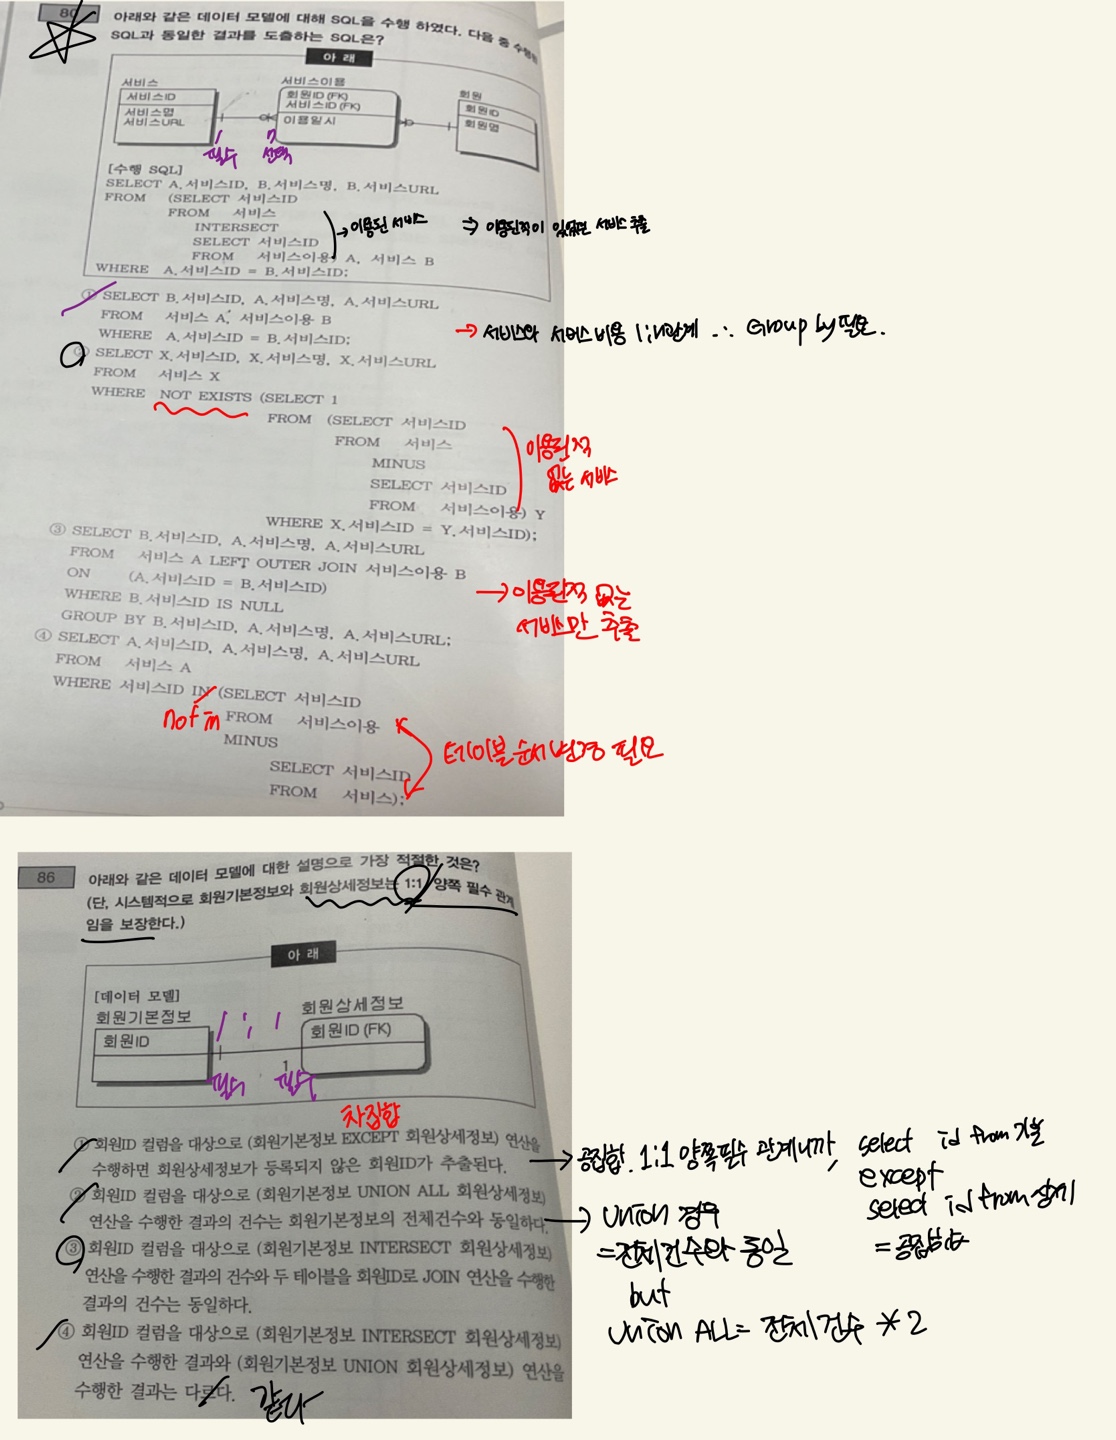 80
아래와 같은 데이터 모델에 대해 SQL을 수행 하였다. 다음 중 수행한
SQL과 동일한 결과를 도출하는 SQL은?
아 래
서비스
서비스ID
서비스명
서비스URL
서비스이용
회원ID (FK)
서비스ID (FK)
이용일시
회원
회원ID
회원명
필수
선택
[수행 SQL]
SELECT A.서비스ID, B.서비스명, B.서비스URL
FROM (SELECT 서비스ID
FROM 서비스
INTERSECT
SELECT 서비스ID
FROM 서비스이용) A, 서비스 B
WHERE A.서비스ID = B.서비스ID;
→ 이용된 서비스
⇒ 이용된적이 있었던 서비스 추출
① SELECT B.서비스ID, A.서비스명, A.서비스URL
FROM 서비스 A, 서비스이용 B
WHERE A.서비스ID = B.서비스ID;
→ 서비스와 서비스이용 1:N관계 ∴ Group by 필요.
② SELECT X.서비스ID, X.서비스명, X.서비스URL
FROM 서비스 X
WHERE NOT EXISTS (SELECT 1
FROM (SELECT 서비스ID
FROM 서비스
MINUS
SELECT 서비스ID
FROM 서비스이용) Y
WHERE X.서비스ID = Y.서비스ID);
이용된적
없는 서비스
③ SELECT B.서비스ID, A.서비스명, A.서비스URL
FROM 서비스 A LEFT OUTER JOIN 서비스이용 B
ON (A.서비스ID = B.서비스ID)
WHERE B.서비스ID IS NULL
GROUP BY B.서비스ID, A.서비스명, A.서비스URL;
→ 이용된적 없는
서비스만 추출
④ SELECT A.서비스ID, A.서비스명, A.서비스URL
FROM 서비스 A
WHERE 서비스ID IN (SELECT 서비스ID
not in
FROM 서비스이용
MINUS
SELECT 서비스ID
FROM 서비스);
테이블 순서 변경 필요
86
아래와 같은 데이터 모델에 대한 설명으로 가장 적절한 것은?
(단, 시스템적으로 회원기본정보와 회원상세정보는 1:1 양쪽 필수 관계
임을 보장한다.)
아 래
[데이터 모델]
회원기본정보
회원ID
회원상세정보
회원ID (FK)
1 : 1
필수
1
필수
차집합
① 회원ID 컬럼을 대상으로 (회원기본정보 EXCEPT 회원상세정보) 연산을
수행하면 회원상세정보가 등록되지 않은 회원ID가 추출된다.
→ 공집합. 1:1 양쪽필수 관계니까,
select id from 기본
except
select id from 상세
= 공집합
② 회원ID 컬럼을 대상으로 (회원기본정보 UNION ALL 회원상세정보)
연산을 수행한 결과의 건수는 회원기본정보의 전체건수와 동일하다.
→ Union 경우
= 전체건수와 동일
but
Union ALL = 전체건수 * 2
③ 회원ID 컬럼을 대상으로 (회원기본정보 INTERSECT 회원상세정보)
연산을 수행한 결과의 건수와 두 테이블을 회원ID로 JOIN 연산을 수행한
결과의 건수는 동일하다.
④ 회원ID 컬럼을 대상으로 (회원기본정보 INTERSECT 회원상세정보)
연산을 수행한 결과와 (회원기본정보 UNION 회원상세정보) 연산을
수행한 결과는 다르다.
같다